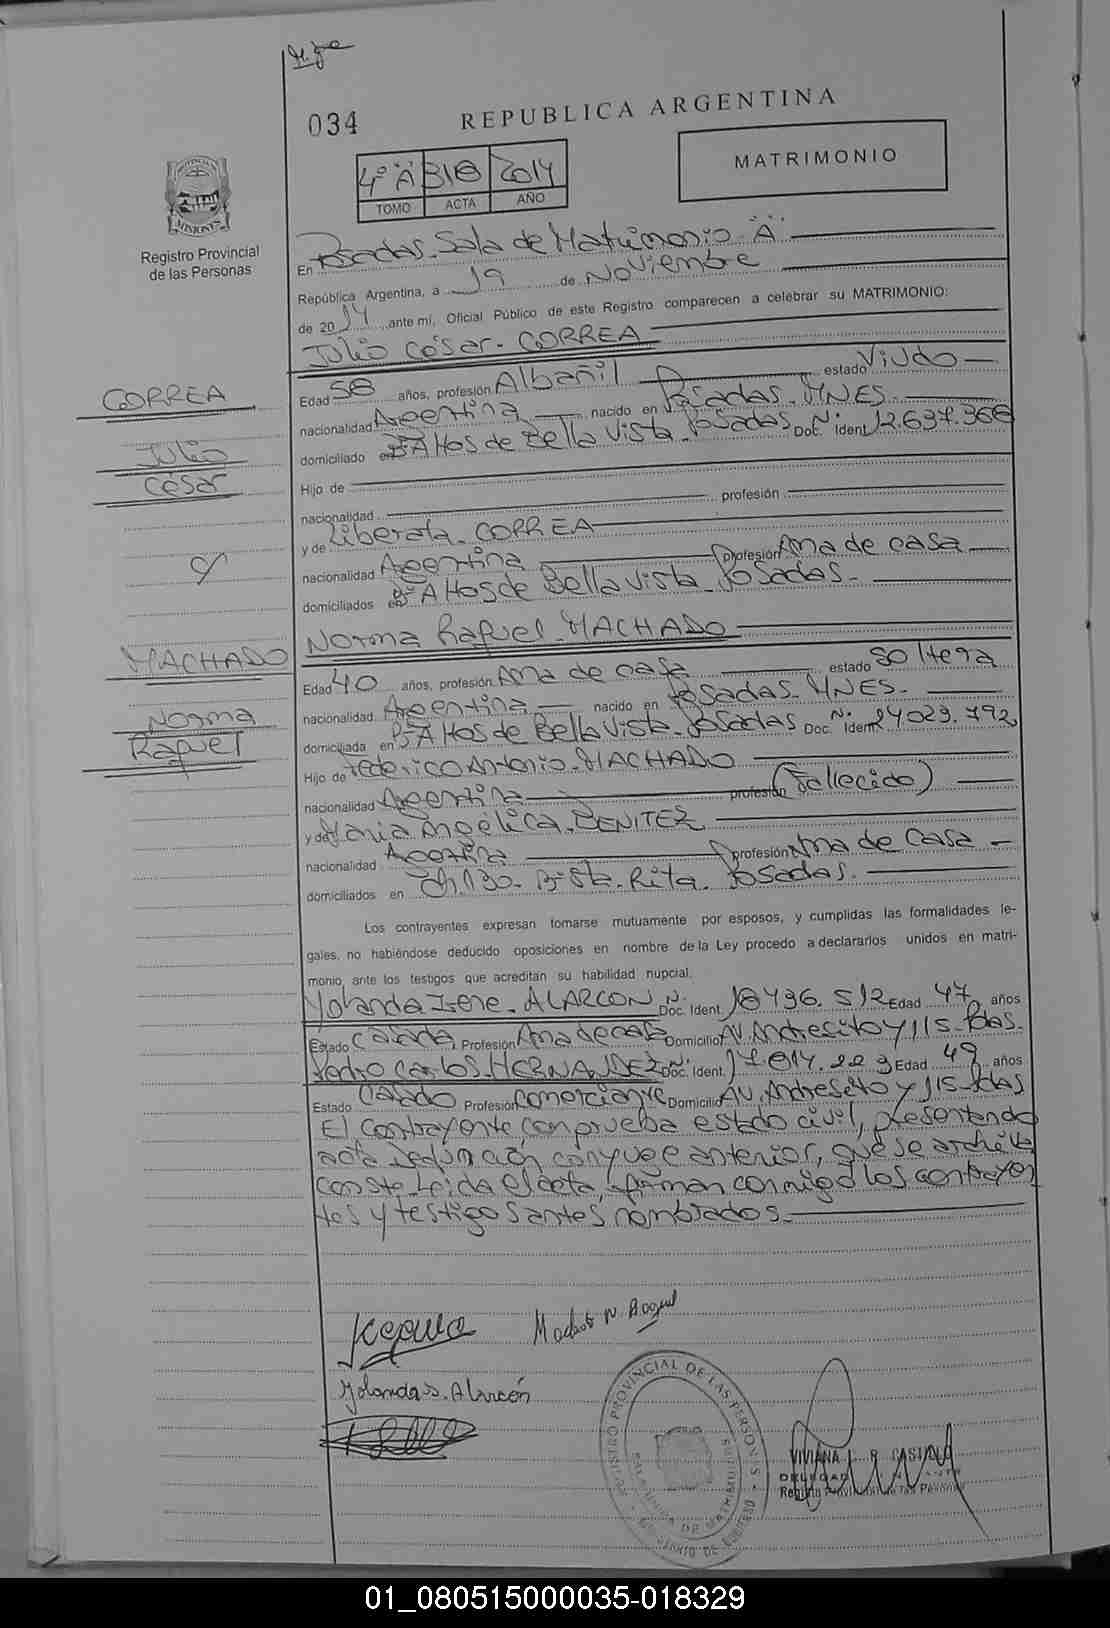 034
REPUBLICA ARGENTINA
MATRIMONIO
4º "A" 318 2014
TOMO ACTA AÑO
PROVINCIA
MISIONES
Registro Provincial
de las Personas
En Posadas. Sala de Matrimonio "A"
República Argentina, a 19 de Noviembre
de 2014 ante mí, Oficial Público de este Registro comparecen a celebrar su MATRIMONIO:
Julio César. CORREA
CORREA
Julio
César
Edad 58 años, profesión Albañil estado Viudo
nacionalidad Argentina nacido en Posadas. MNES.
domiciliado en Bº Altos de Bella Vista. Posadas Doc. Nº Ident. 12.637.368
Hijo de
nacionalidad profesión
y de Liberata. CORREA
nacionalidad Argentina profesión Ama de casa
domiciliados en Bº Altos de Bella Vista. Posadas.
Norma Raquel. MACHADO
MACHADO
Norma
Raquel
Edad 40 años, profesión Ama de casa estado Soltera
nacionalidad Argentina nacido en Posadas. MNES.
domiciliada en Bº Altos de Bella Vista. Posadas Doc. Nº Ident. 24.029.792
Hijo de Federico Antonio. MACHADO
nacionalidad Argentina profesión (Fallecido)
y de María Angélica. BENITEZ
nacionalidad Argentina profesión Ama de casa
domiciliados en Ch. 130. Bº Sta. Rita. Posadas.
Los contrayentes expresan tomarse mutuamente por esposos, y cumplidas las formalidades le-
gales, no habiéndose deducido oposiciones en nombre de la Ley procedo a declararlos unidos en matri-
monio ante los testigos que acreditan su habilidad nupcial.
Yolanda Irene. ALARCON Doc. Nº Ident. 18.436.512 Edad 47 años
Estado Casada Profesión Ama de casa Domicilio AV. Andresito y 115. Pdas.
Pedro Carlos. HERNANDEZ Doc. Nº Ident. 17.814.229 Edad 49 años
Estado Casado Profesión Comerciante Domicilio AV. Andresito y 115. Pdas
El Contrayente comprueba estado civil, presentando
acta defunción cónyuge anterior, que se archiva
conste. Leída el acta, firman conmigo los contrayen
tes y testigos antes nombrados.
Machado N. Raquel
Yolanda I. Alarcón
REGISTRO PROVINCIAL DE LAS PERSONAS
VIVIANA
01_080515000035-018329